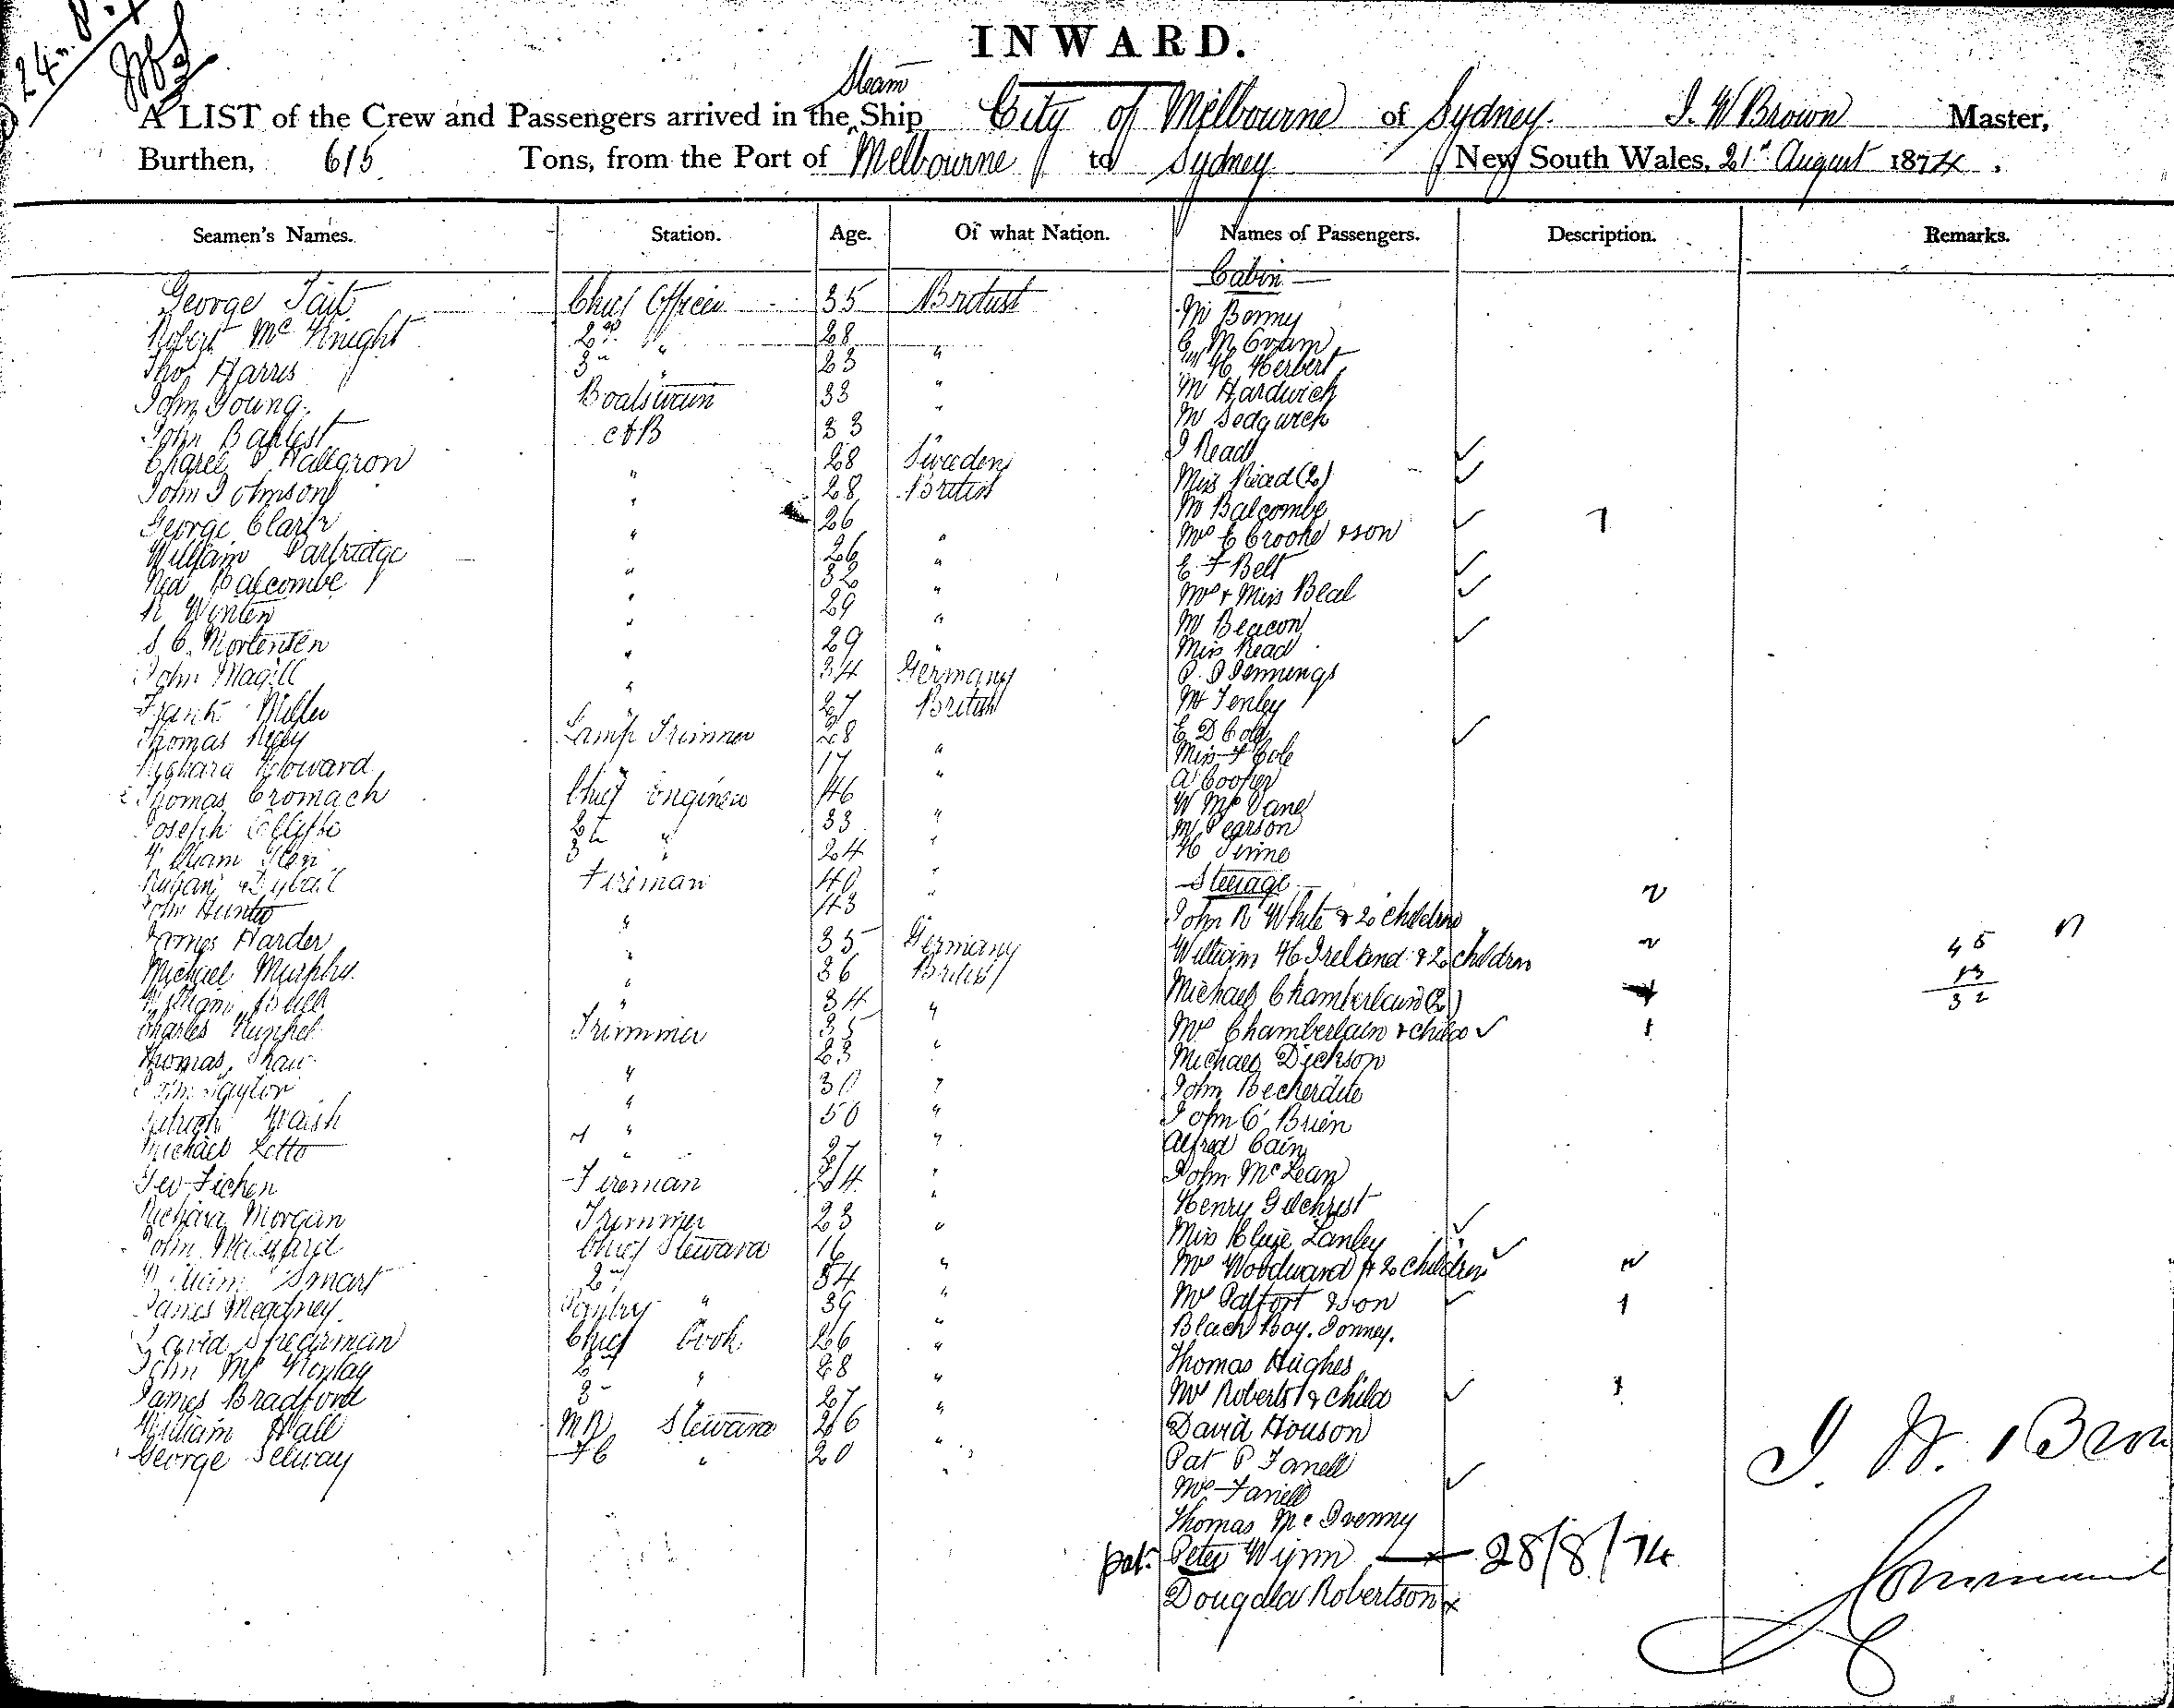 24
INWARD.
Steam
A LIST of the Crew and Passengers arrived in the Ship City of Melbourne of Sydney. J. W Brown Master,
Burthen, 615 Tons, from the Port of Melbourne to Sydney New South Wales, 21st August 1874.
Seamen's Names. Station. Age. Of what Nation. Names of Passengers. Description. Remarks.
Cabin
George Tait Chief Officer 35 British Mr Bonny
Robert Mc Knight 2nd " 28
Thos Harris 3rd " 23 " H Herbert
John Young Boatswain 33 " Mr Hardwich
John AB 33 " Mr Sedgwick
28 Sweden J Read
John Johnson " 28 British Miss Read (2)
George Clark " 26 Mr Balcombe
William Partridge " 26 " Mrs E Crooke & son 1
Ned Balcombe " 32 " E F Belt
R Winten " 29 " Mrs & Miss Beal
S C. Mortensen " 29 " Mr Beacon
John Magill " 34 Germany Miss Read
Frank Miller " 27 British P. J Jennings
Thomas Lamp Trimmer 28 Mr Tenley
Richard Howard 17 " E D Cole
Thomas Cromach Chief Engineer 46 " Miss F Cole
Joseph 2nd " 33 " A Cooper
William 3 " 24 " W Mc Vane
Fireman 40 " Mr Pearson
John Hunter 43 H
Steerage
James Harder " 35 Germany John R White & 2 children 2
Michael Murphy " 36 British William H Ireland & 2 children 2 45
William " 34 " Michael Chamberlain (2) 13
Charles Trimmer 35 Mrs Chamberlain & child 1 32
Thomas Shaw 23 " Michael Dickson
John Taylor " 30 " John Becherdite
Patrick Walsh " 50 " John O'Brien
Michael Lotto " 27 " Alfred Cain
Geo Fichen Fireman 24 " John McLean
Richard Morgan Trimmer 23 " Henry Gilchrist
John Chief Steward 16 " Miss Eliza Lanley
William Smart 2nd " 34 " Mrs Woodward & 2 children 2
James Meadney Pantry " 39 " Mrs & son 1
David Spearman Chief Cook 26 " Black Boy. Jonney.
John Mc 2 " 28 " Thomas Hughes
James Bradford 3 " 27 " Mrs Roberts & child 1
William Hall Steward 26 " David Houson
George Selway " 20 " Pat P Farrell
Mrs Farrell
Thomas Mc
pat. Peter Wynn 28/8/74
Robertson
J. W. Brown
Command